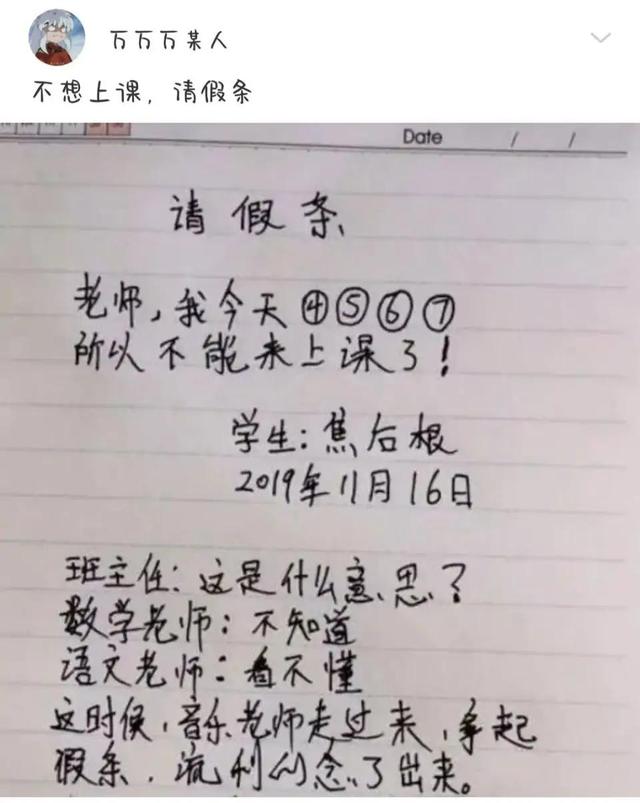 万万万某人
不想上课，请假条
Date / /
请假条
老师，我今天④⑤⑥⑦
所以不能来上课了！
学生：焦后根
2019年11月16日
班主任：这是什么意思？
数学老师：不知道
语文老师：看不懂
这时候，音乐老师走过来，拿起
假条，流利的念了出来。